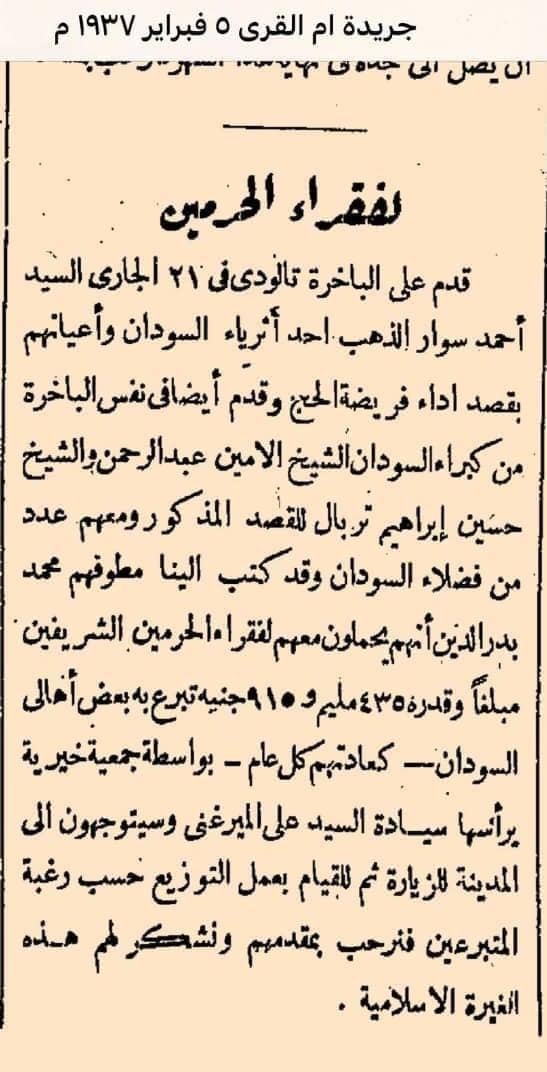 جريدة ام القرى ٥ فبراير ١٩٣٧ م
ان يصل الى جدة فى نهاية هذا الشهر
لفقراء الحرمين
قدم على الباخرة تالودى فى ٢١ الجارى السيد
أحمد سوار الذهب احد أثرياء السودان وأعيانهم
بقصد اداء فريضة الحج وقدم أيضا فى نفس الباخرة
من كبراء السودان الشيخ الامين عبد الرحمن والشيخ
حسين إبراهيم تربال للقصد المذكور ومعهم عدد
من فضلاء السودان وقد كتب الينا مطوفهم محمد
بدر الدين أنهم يحملون معهم لفقراء الحرمين الشريفين
مبلغاً وقدره ٤٣٥ مليم و ٩١٥ جنيه تبرع به بعض أهالى
السودان — كعادتهم كل عام — بواسطة جمعية خيرية
يرأسها سيادة السيد على الميرغنى وسيتوجهون الى
المدينة للزيارة ثم للقيام بعمل التوزيع حسب رغبة
المتبرعين فنرحب بمقدمهم ونشكر لهم هذه
الغيرة الاسلامية .